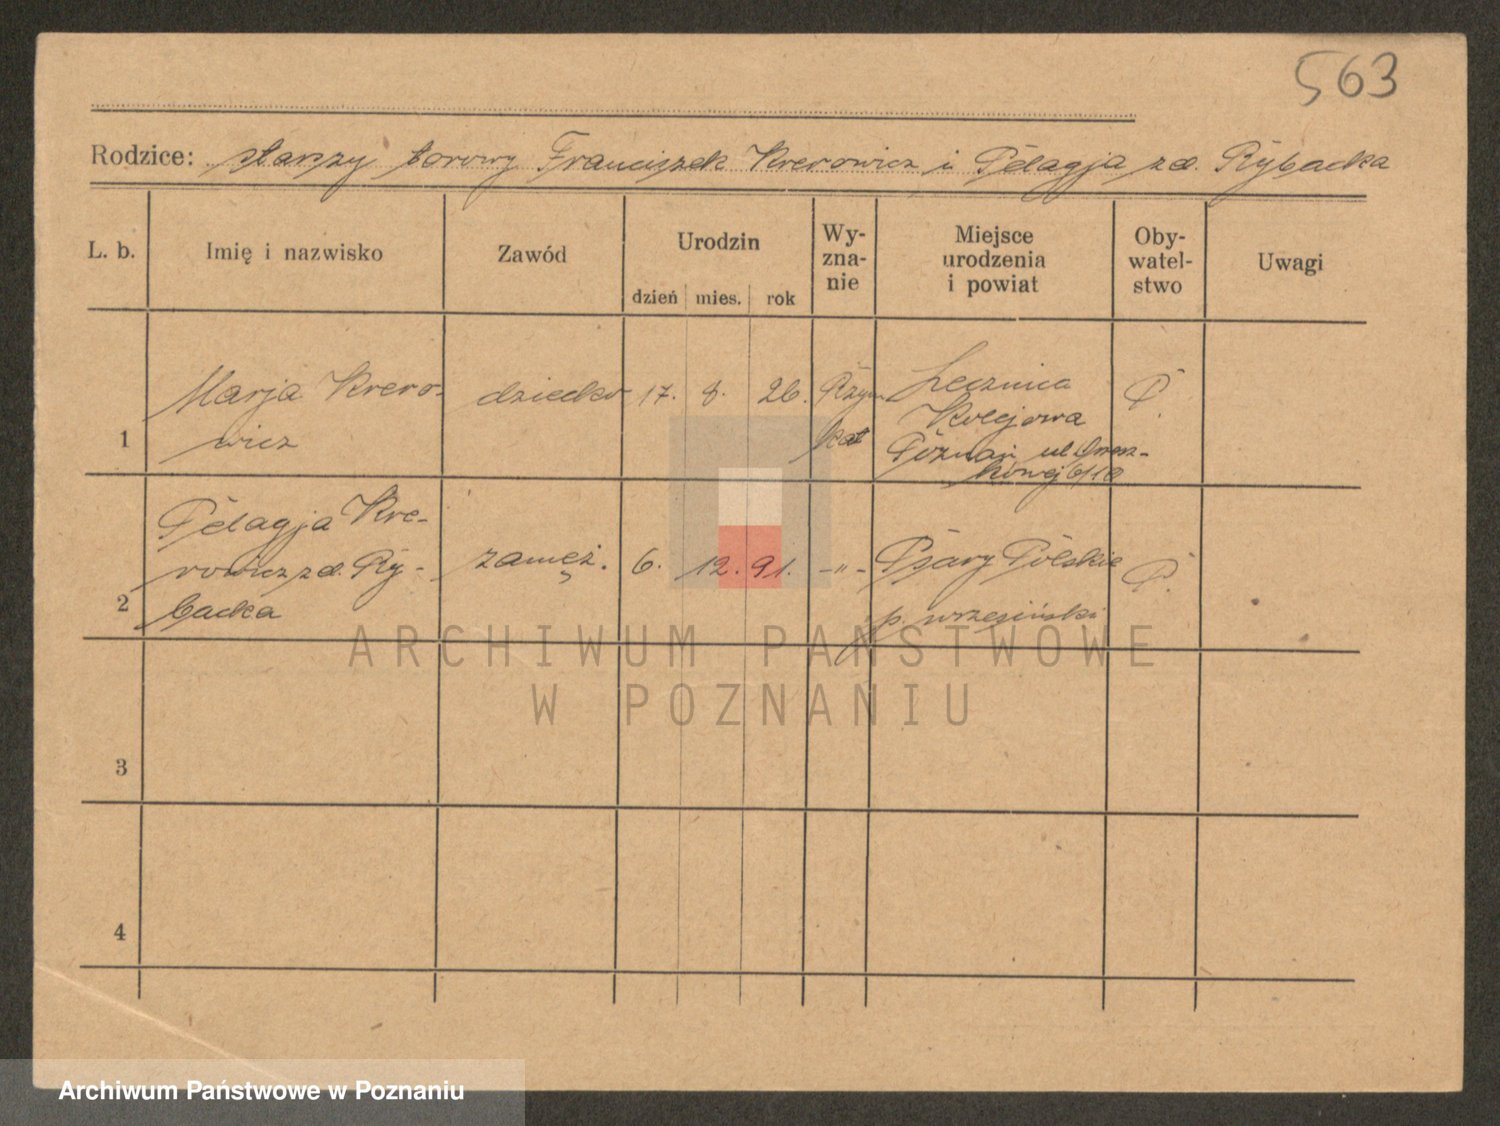 563
Rodzice: starszy torowy Franciszek Krerowicz i Pelagja zd. Rybacka
L. b. Imię i nazwisko Zawód Urodzin Wy-zna-nie Miejsce urodzenia i powiat Oby-watel-stwo Uwagi
dzień mies. rok
1 Marja Krero-wicz dziecko 17. 8. 26. Rzym kat Lecznica Kolejowa Poznań ul. Orzesz-kowej P.
2 Pelagja Kre-rowicz zd. Ry-backa zamęż. 6. 12. 91. -"- Psary Polskie p. wrzesiński P.
3
4
ARCHIWUM PAŃSTWOWE
W POZNANIU
Archiwum Państwowe w Poznaniu